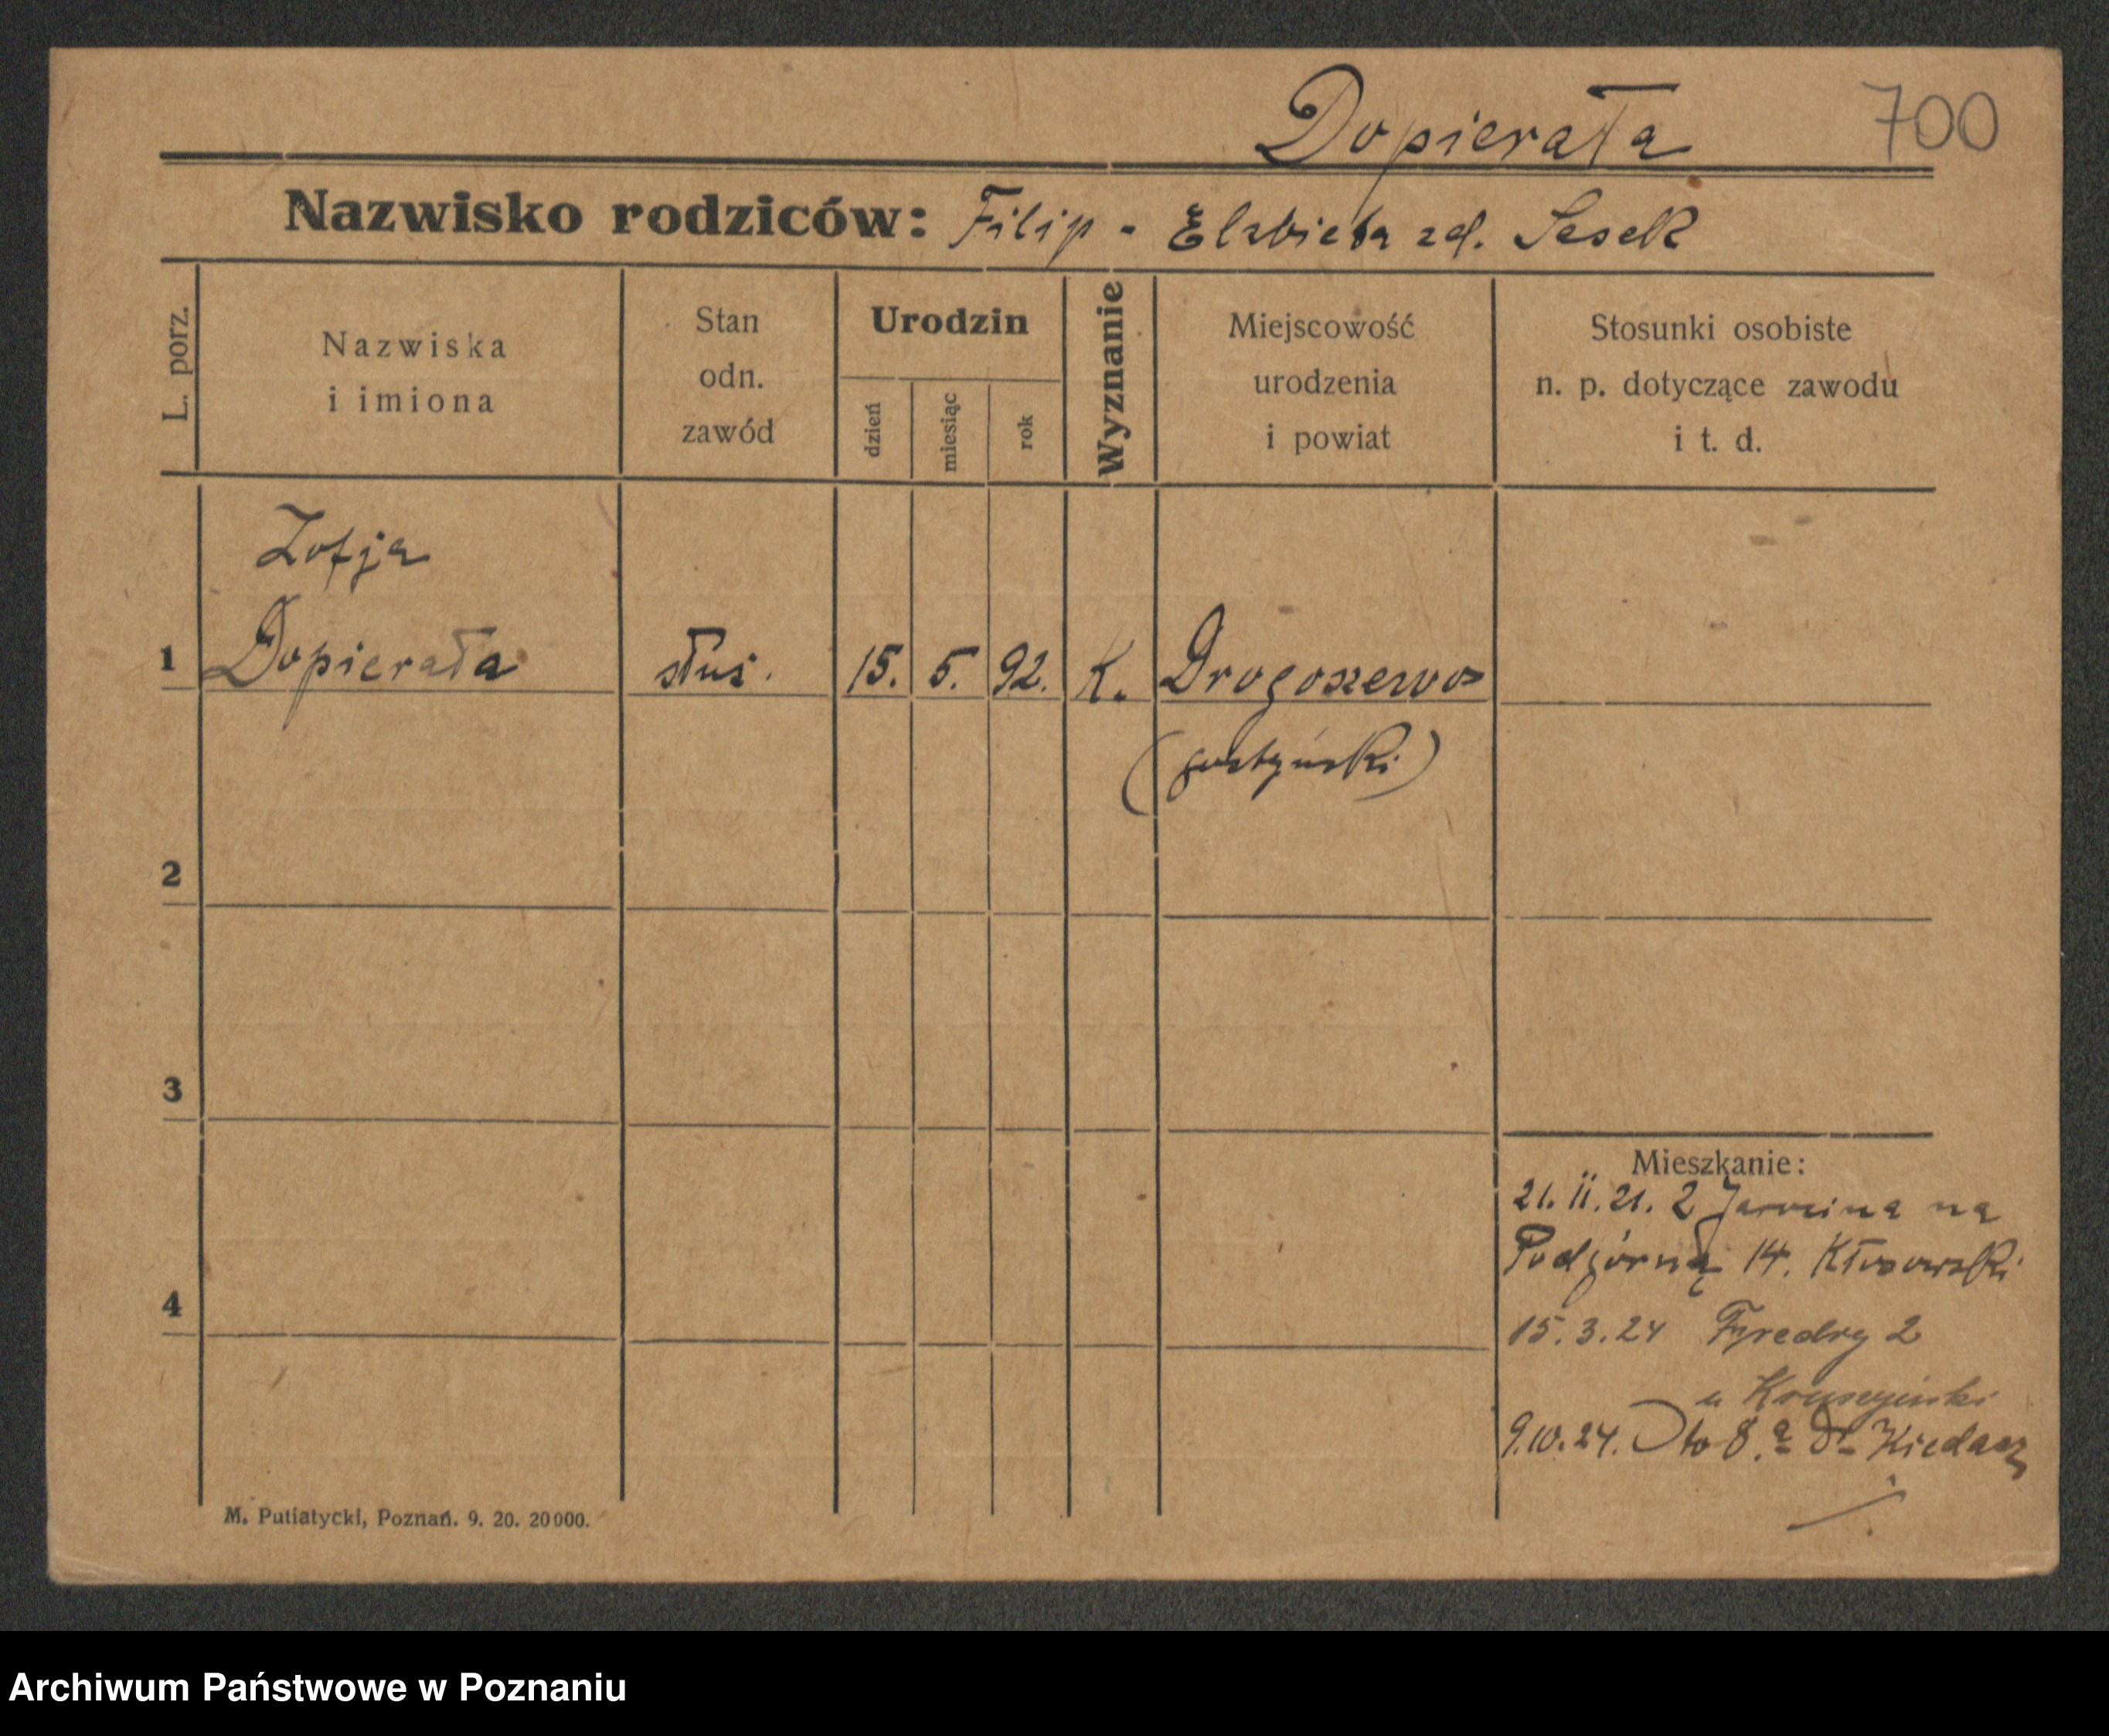 Dopierała 700
Nazwisko rodziców: Filip - Elżbieta zd. Sesek
L. porz.
Nazwiska
i imiona
Stan
odn.
zawód
Urodzin
dzień
miesiąc
rok
Wyznanie
Miejscowość
urodzenia
i powiat
Stosunki osobiste
n. p. dotyczące zawodu
i t. d.
Zofja
1 Dopierała służ. 15. 5. 92. K. Drogoszewo
(gostyński)
2
3
4
Mieszkanie:
21. II. 21. z Jarocina na
Podgórną 14. Kłosowski
15. 3. 24 Fredry 2
u
9.10.24. 8.
M. Putiatycki, Poznań. 9. 20. 20000.
Archiwum Państwowe w Poznaniu